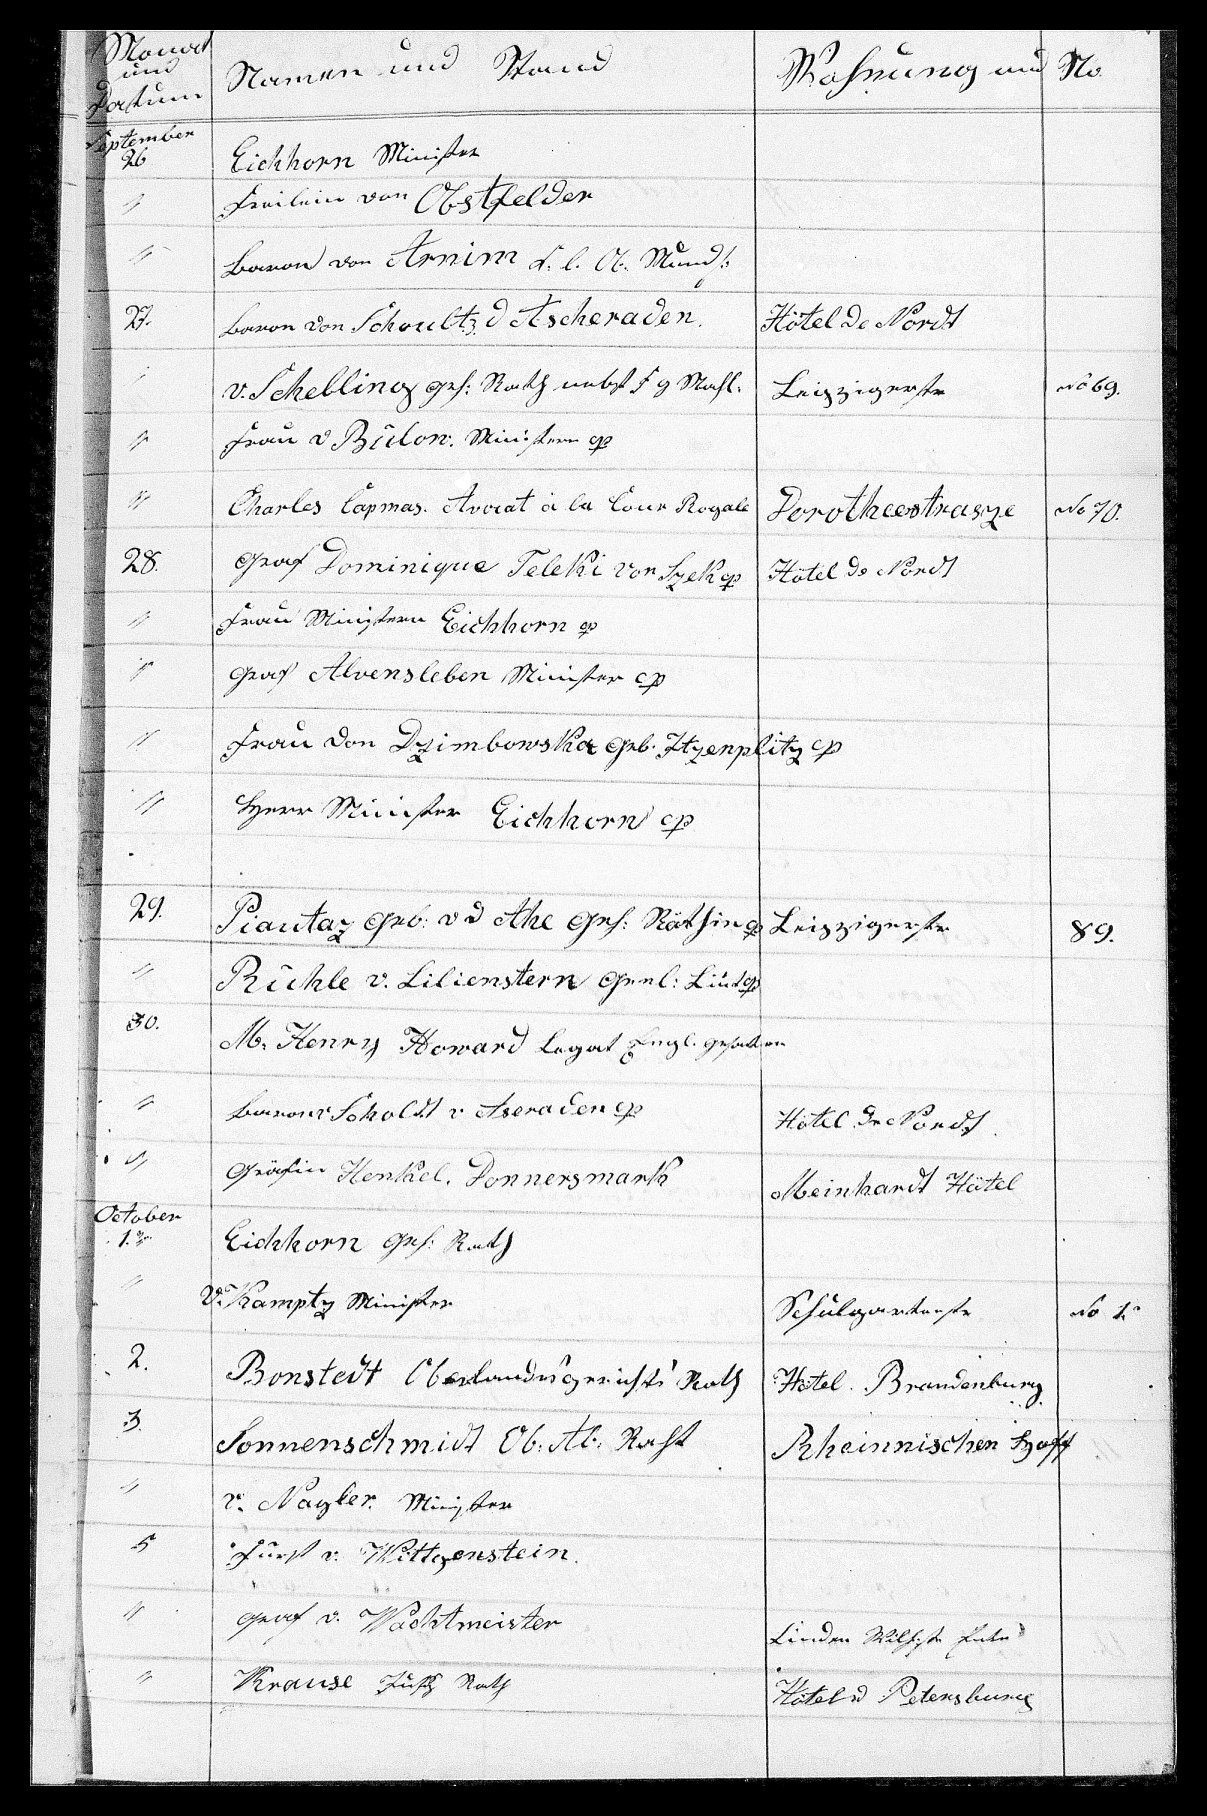 Monat und Datum Namen und Stand Wohnung und No.
September 26 Eichhorn Minister
" Freilein von Obstfelder
" Baron von Arnim
27. Baron von Schoultz d Ascheraden. Hôtel de Nordt
v. Schelling geh: Rath nebst Leipzigerstr No 69.
" Frau v Bülow. Ministern
" Charles Capmas. Avocat à la Cour Royale Dorotheenstrasze No 70.
28. Graf Dominique Teleki von Szek Hôtel de Nordt
" Frau Ministern Eichhorn
" Graf Alvensleben Minister
" Frau von Dzimbowska geb. Itzenplitz
" Herr Minister Eichhorn
29. Piautaz geb: v d Ahe geh: Räthin Leipzigerstr 89.
" Rühle v. Lilienstern Genl: Liut
30. M. Henry Howard Legat Engl. gesandten
" Baron v Scholdt v Aseraden Hôtel de Nordt.
" Gräfin Henkel. Donnersmark Meinhardt Hôtel
October 1. Eichhorn geh: Rath
" v. Kamptz Minister Schulgartenstr No 1.
2. Bonstedt Oberlandesgerichts Rath Hotel. Brandenburg
3. Sonnenschmidt Ob. Rheinnischen Hoff
" v. Nagler. Minister
5 Fürst v. Wittgenstein.
" Graf v. Wachtmeister Linden
" Krause Justz Rath Hôtel d Petersburg